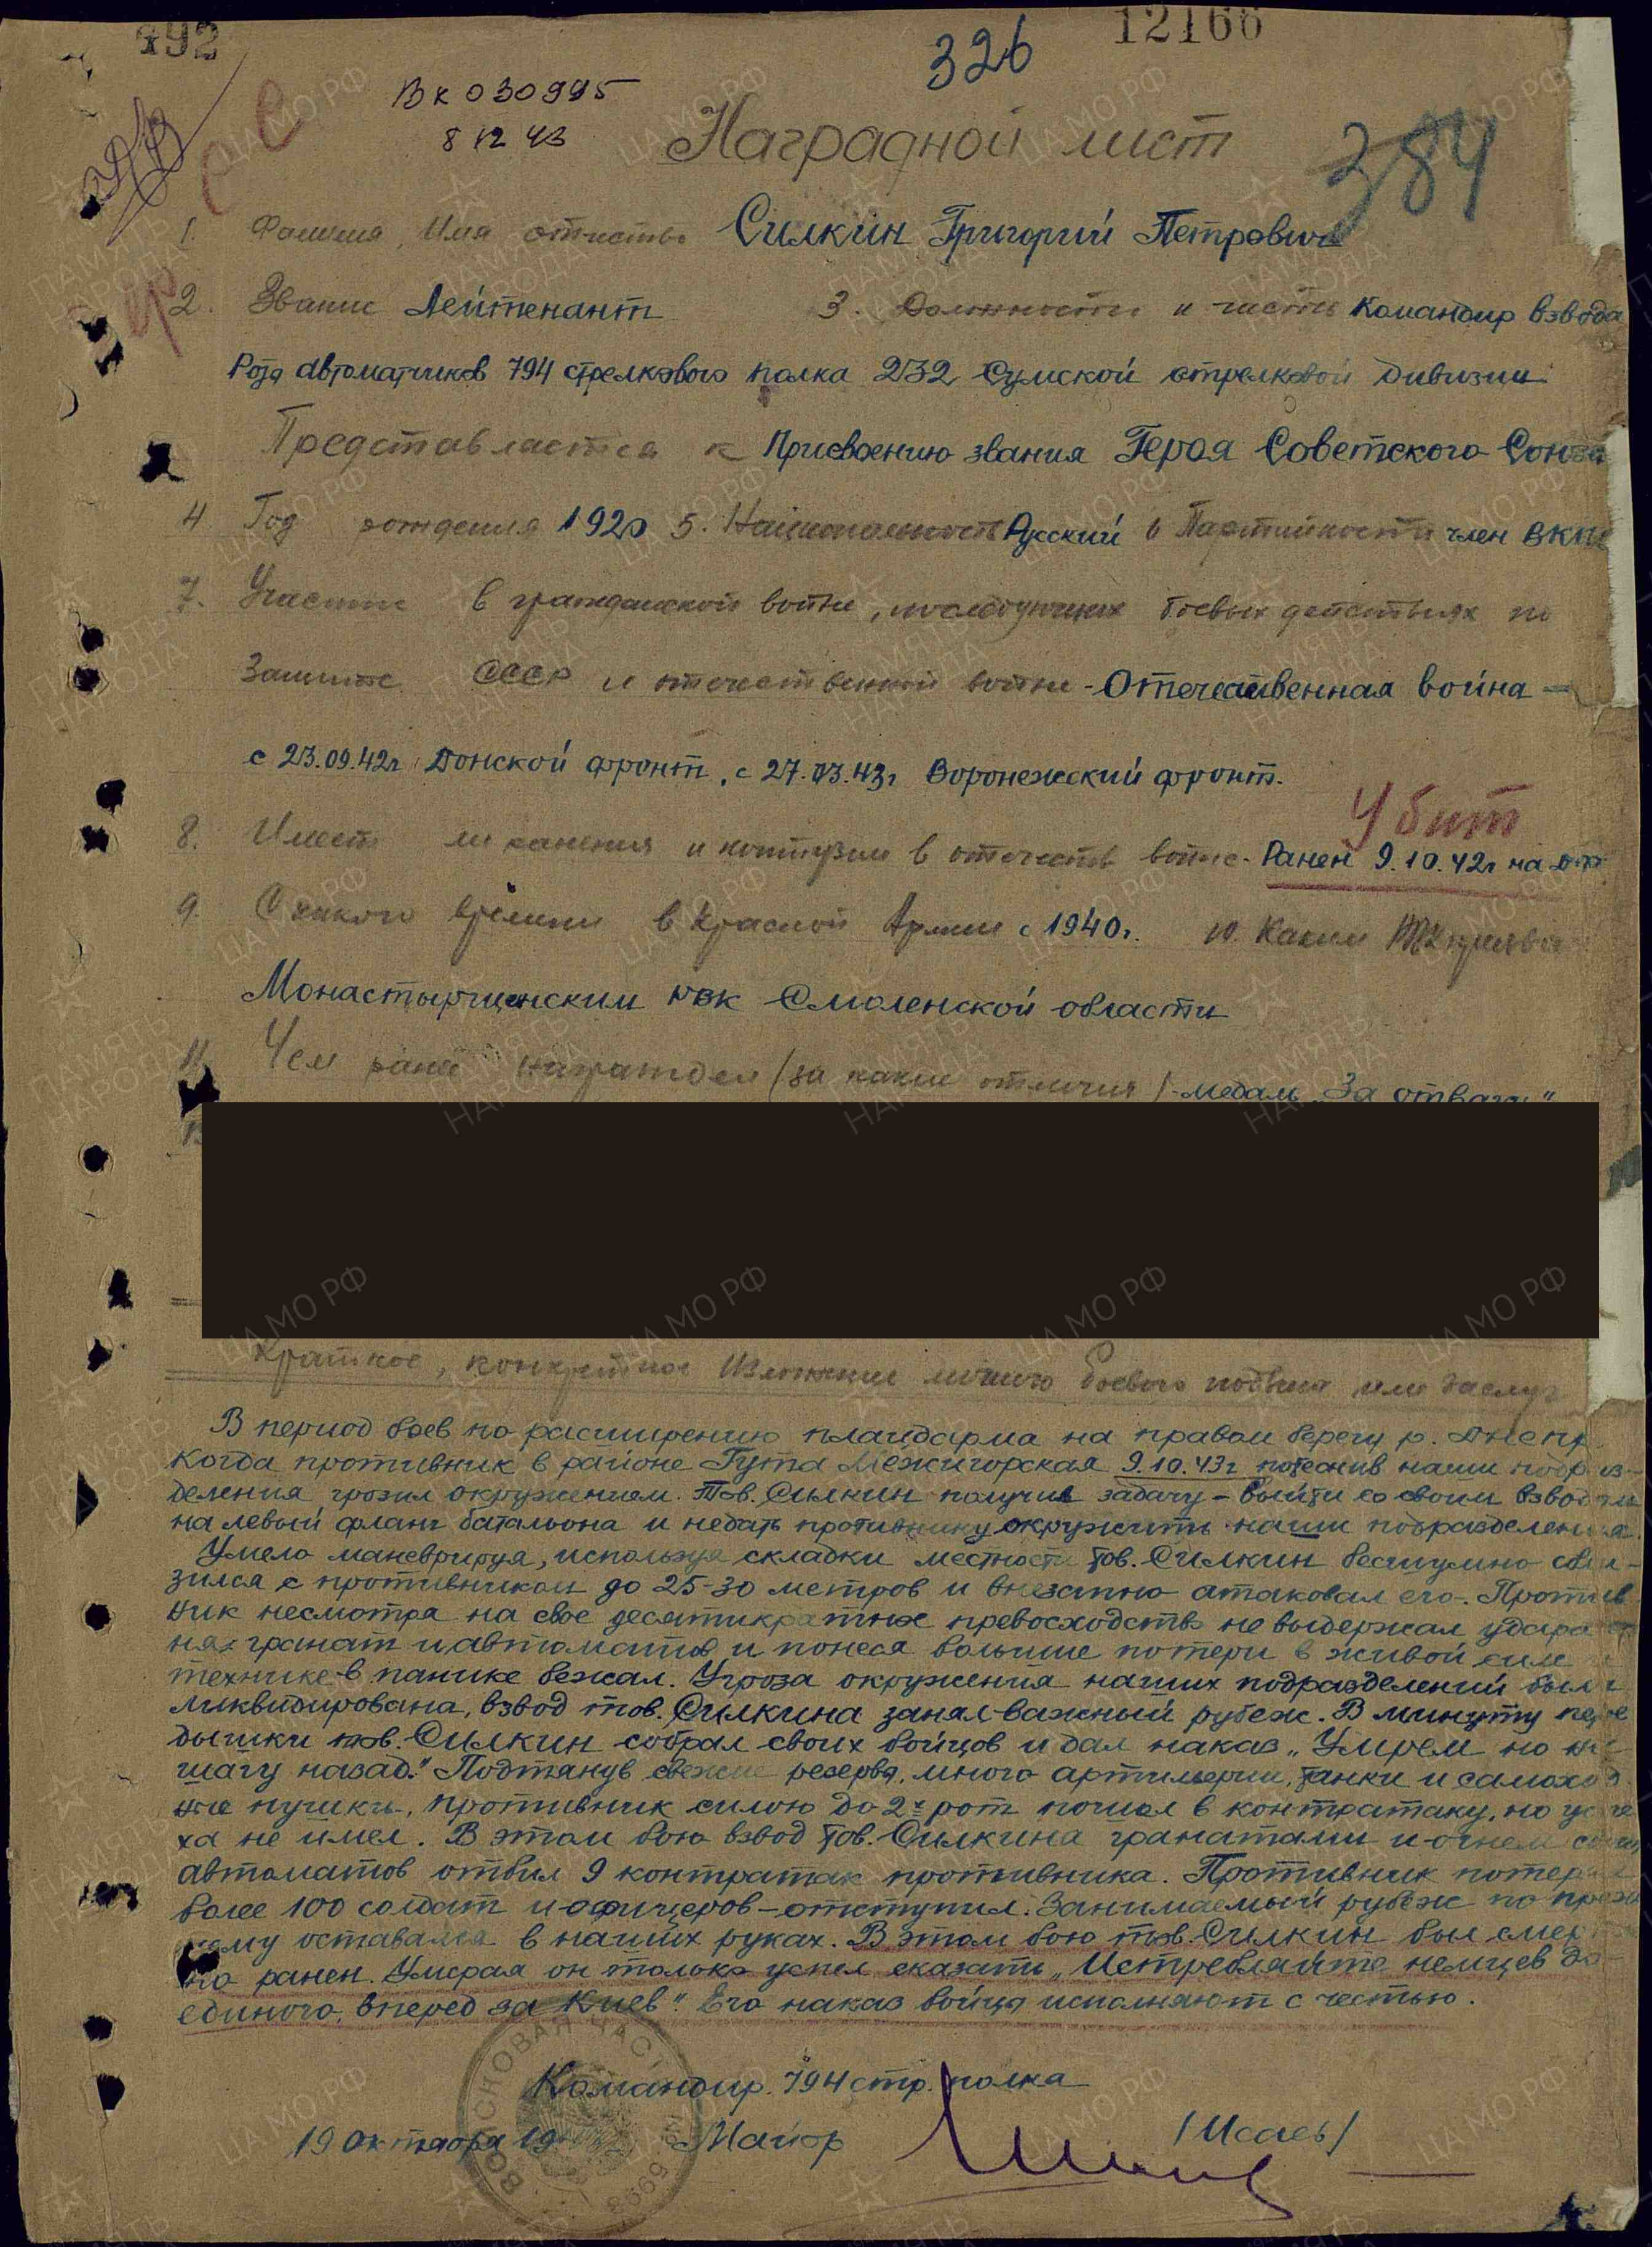 192
12166
326
Вк 030995
8 12 43
Наградной лист
384
1. Фамилия, Имя отчество Силкин Григорий Петрович
2. Звание Лейтенант 3. Должность и часть Командир взвода
Рота автоматчиков 794 стрелкового полка 232 Сумской стрелковой дивизии
Представляется к Присвоению звания Героя Советского Союза
4. Год рождения 1920 5. Национальность Русский 6 Партийность член ВКП
7. Участие в гражданской войне, последующих боевых действиях по
защите СССР и отечественной войне - Отечественная война -
с 23.09.42г Донской фронт, с 27.03.43г Воронежский фронт.
Убит
8. Имеет ли ранения и контузии в отечеств войне - Ранен 9.10.42г на
9. С какого времени в Красной Армии с 1940г. 10. Каким РВК призван
Монастырщинским РВК Смоленской области
11. Чем ранее награжден (за какие отличия) - медаль „За отвагу"
Краткое, конкретное изложение личного боевого подвига или заслуг
В период боев по расширению плацдарма на правом берегу р. Днепр
когда противник в районе Гута Межигорская 9.10.43г потеснив наши подраз-
деления грозил окружением. Тов. Силкин получил задачу - выйти со своим взводом
на левый фланг батальона и недать противнику окружить наши подразделения.
Умело маневрируя, используя складки местности тов. Силкин бесшумно сбли-
зился с противником до 25-30 метров и внезапно атаковал его. Против
ник несмотря на свое десятикратное превосходство не выдержал удара
ных гранат и автоматов и понеся большие потери в живой силе и
технике - в панике бежал. Угроза окружения наших подразделений была
ликвидирована, взвод тов. Силкина занял важный рубеж. В минуту пере
дышки тов. Силкин собрал своих бойцов и дал наказ „Умрем но не
шагу назад." Подтянув свежие резервы, много артиллерии, танки и самоход
ные пушки, противник силою до 2х рот пошел в контратаку, но успе
ха не имел. В этом бою взвод тов. Силкина гранатами и огнем
автоматов отбил 9 контратак противника. Противник потеряв
более 100 солдат и офицеров - отступил. Занимаемый рубеж по преж
нему оставался в наших руках. В этом бою тов. Силкин был смер
но ранен. Умирая он только успел сказать „Истребляйте немцев до
единого, вперед за Киев". Его наказ бойцы исполняют с честью.
Командир 794 стр. полка
19 Октября 19 Майор /Исаев/